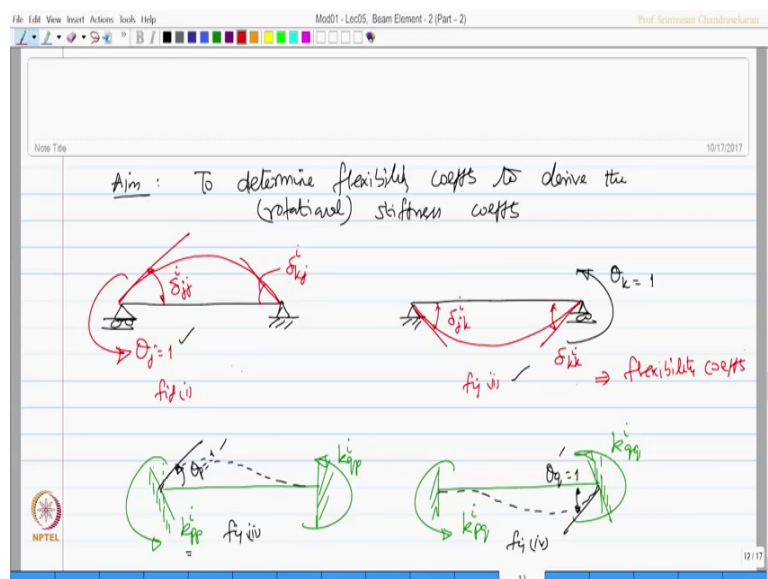 File Edit View Insert Actions Tools Help
Mod01 - Lec05, Beam Element - 2 (Part – 2)
Prof. Srinivasan Chandrasekaran
B I
Note Title
10/17/2017
Aim : To determine flexibility coeffts to derive the
(rotational) stiffness coeffts
δ^i_jj
δ^i_kj
θ_j=1 ✓
fig (i)
θ_k = 1
δ^i_jk
δ^i_kk
fig (ii) ✓
⇒ flexibility coeffts
θ_p=1
k^i_qp
k^i_pp
fig (iii)
k^i_qq
θ_q=1
k^i_pq
fig (iv)
NPTEL
12 / 17